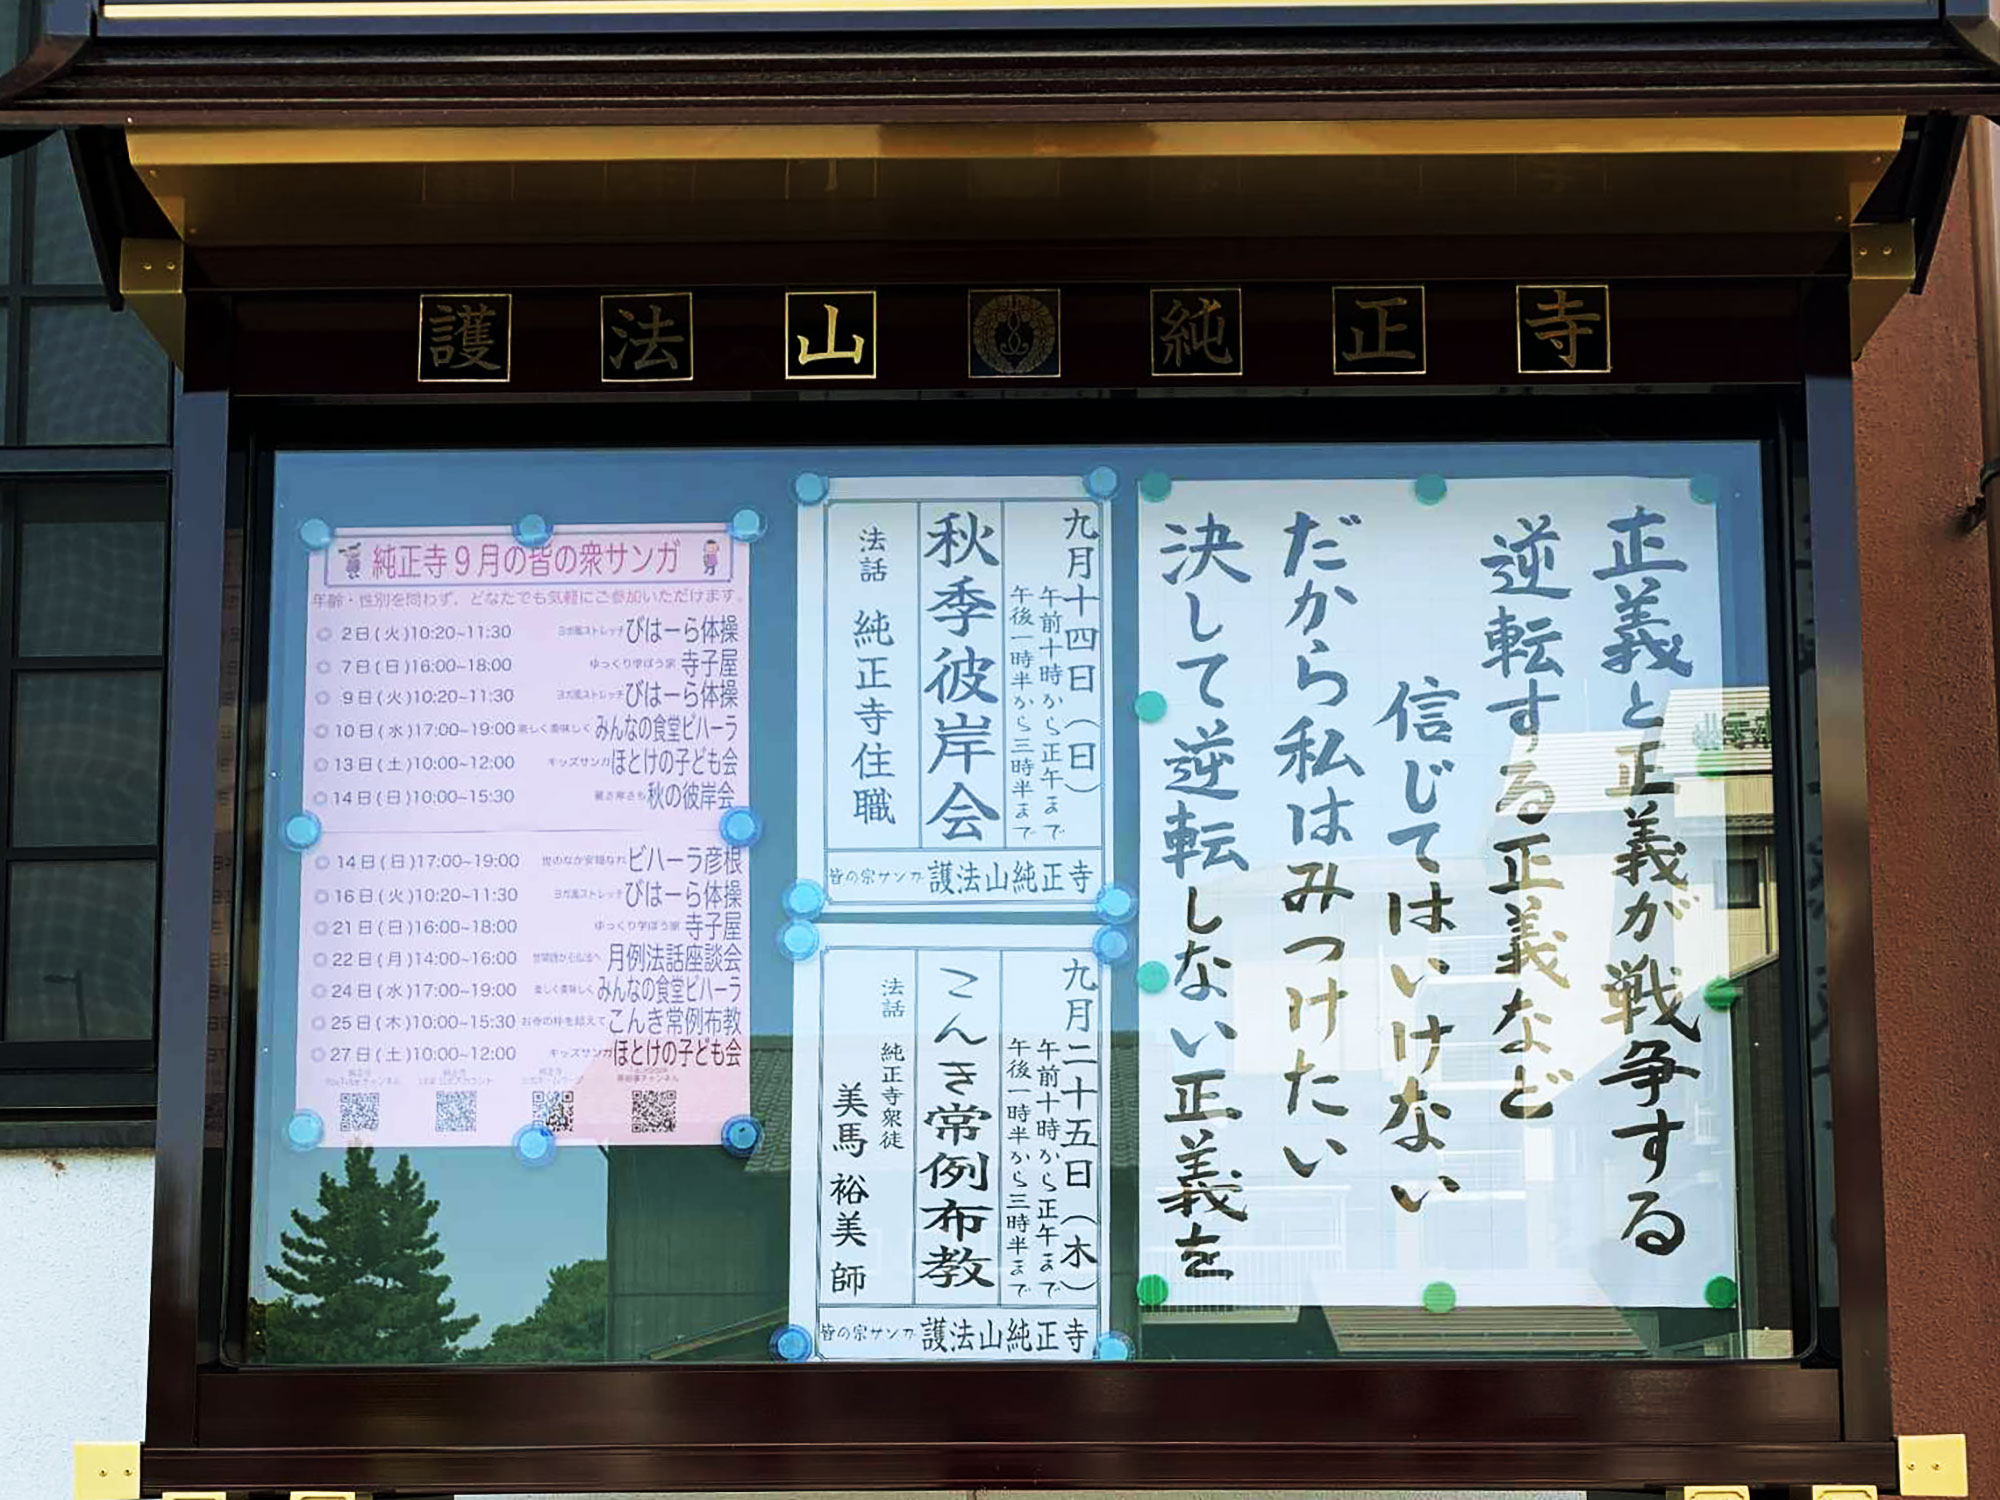 護法山純正寺
正義と正義が戦争する
逆転する正義など
信じてはいけない
だから私はみつけたい
決して逆転しない正義を
九月十四日(日)
午前十時から正午まで
午後一時半から三時半まで
秋季彼岸会
法話 純正寺住職
皆の宗サンガ 護法山純正寺
九月二十五日(木)
午前十時から正午まで
午後一時半から三時半まで
こんき常例布教
法話 純正寺衆徒
美馬裕美師
皆の宗サンガ 護法山純正寺
純正寺9月の皆の衆サンガ
年齢・性別を問わず、どなたでも気軽にご参加いただけます。
◎ 2日(火)10:20~11:30 ヨガ風ストレッチ びはーら体操
◎ 7日(日)16:00~18:00 ゆっくり学ぼう家 寺子屋
◎ 9日(火)10:20~11:30 ヨガ風ストレッチ びはーら体操
◎ 10日(水)17:00~19:00 楽しく美味しく みんなの食堂ビハーラ
◎ 13日(土)10:00~12:00 キッズサンガ ほとけの子ども会
◎ 14日(日)10:00~15:30 暑さ寒さも 秋の彼岸会
◎ 14日(日)17:00~19:00 世のなか安穏なれ ビハーラ彦根
◎ 16日(火)10:20~11:30 ヨガ風ストレッチ びはーら体操
◎ 21日(日)16:00~18:00 ゆっくり学ぼう家 寺子屋
◎ 22日(月)14:00~16:00 月例法話座談会
◎ 24日(水)17:00~19:00 楽しく美味しく みんなの食堂ビハーラ
◎ 25日(木)10:00~15:30 お寺の枠を超えて こんき常例布教
◎ 27日(土)10:00~12:00 キッズサンガ ほとけの子ども会
純正寺
YouTubeチャンネル
純正寺
LINE公式アカウント
純正寺